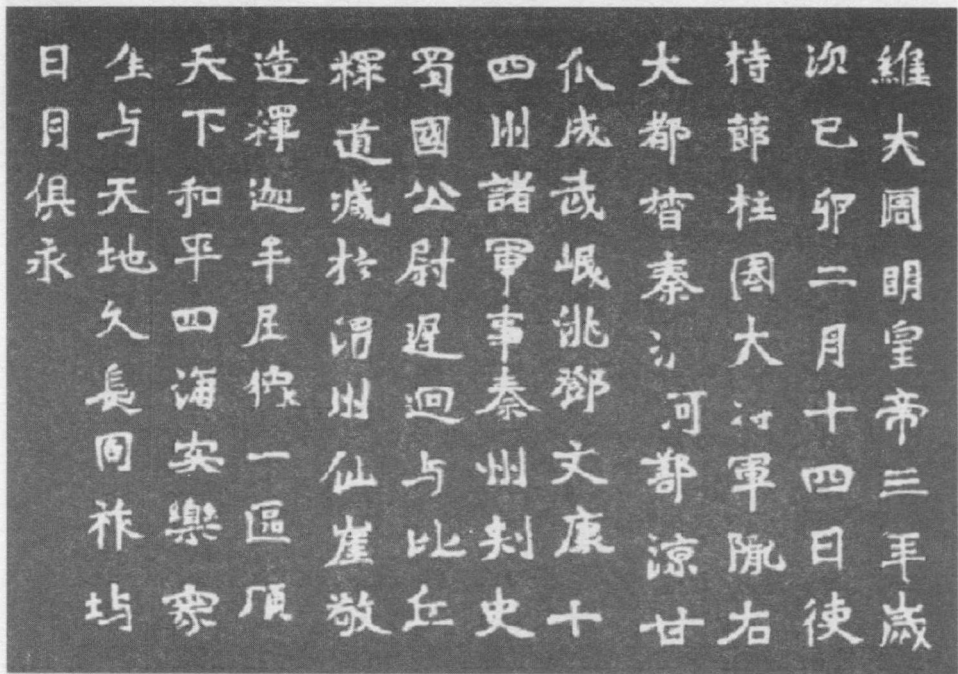 維大周明皇帝三年歲
次已卯二月十四日使
持節柱國大將軍隴右
大都督秦河鄯涼甘
瓜成武岷洮鄧文康十
四州諸軍事秦州刺史
蜀國公尉遲迥与比丘
釋道藏於渭州仙崖敬
造釋迦牟尼像一區願
天下和平四海安樂衆
生与天地久長周祚与
日月俱永